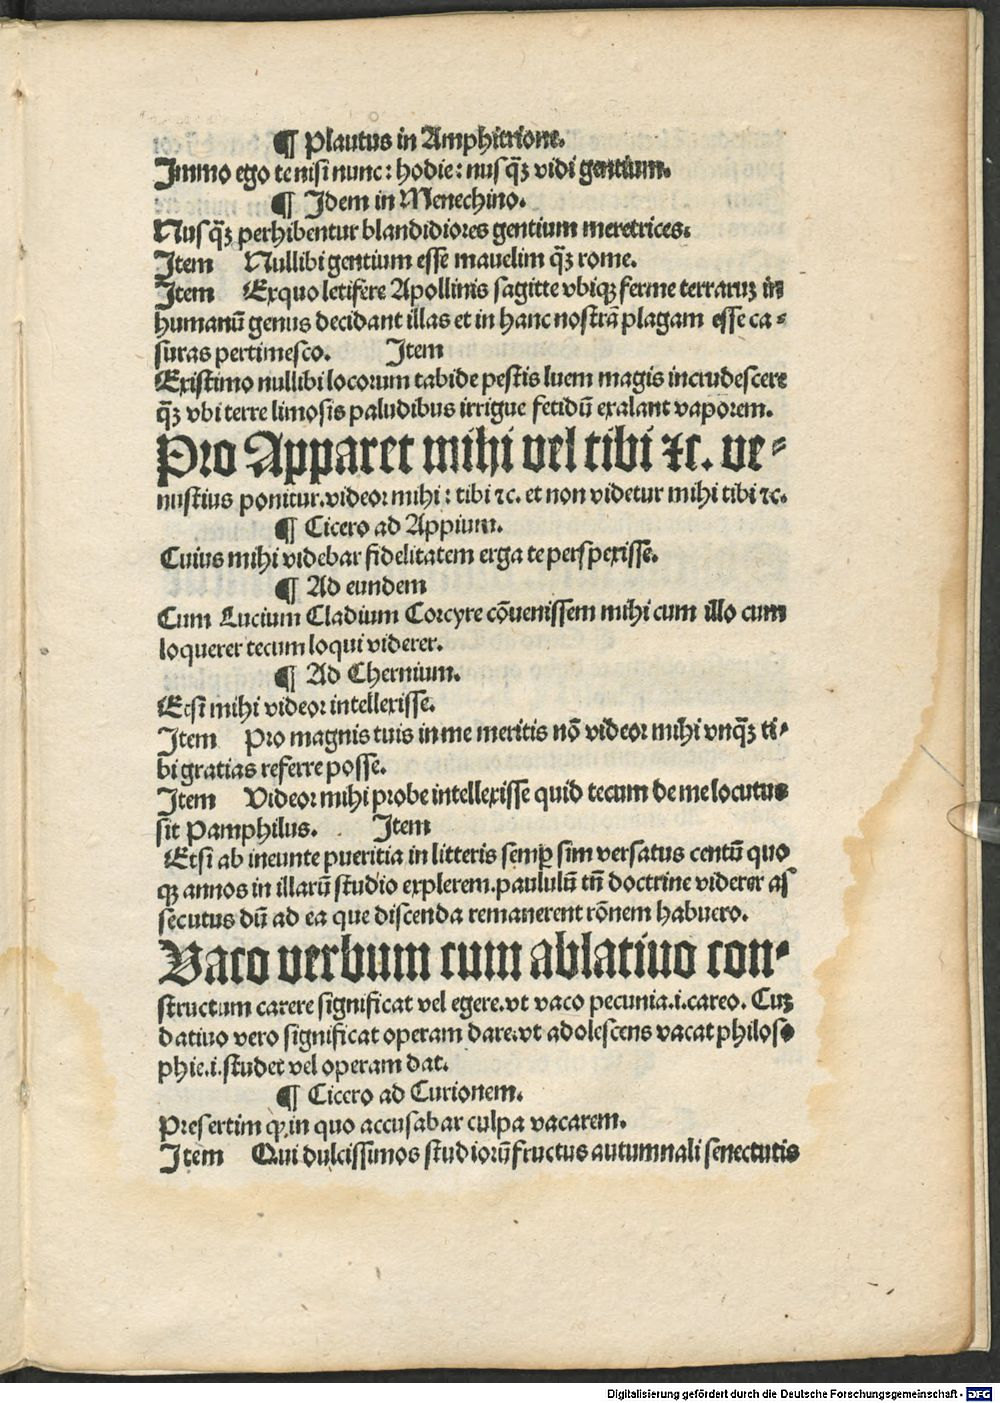 ¶ Plautus in Amphitrione.
Immo ego te nisi nunc: hodie: nusq̃ꝫ vidi gentium.
¶ Idem in Menechino.
Nusq̃ꝫ perhibentur blandidiores gentium meretrices.
Item Nullibi gentium esse mauelim q̃ꝫ rome.
Item Exquo letifere Apollinis sagitte vbiqꝫ ferme terraruꝫ in
humanū genus decidant illas et in hanc nostrā plagam esse ca⸗
suras pertimesco. Item
Existimo nullibi locorum tabide pestis luem magis incrudescere
q̃ꝫ vbi terre limosis paludibus irrigue fetidū exalant vaporem.
Pro Apparet mihi vel tibi ⁊c. ve⸗
nustius ponitur. videor mihi: tibi ⁊c. et non videtur mihi tibi ⁊c.
¶ Cicero ad Appium.
Cuius mihi videbar fidelitatem erga te perspexisse.
¶ Ad eundem
Cum Lucium Cladium Corcyre cōuenissem mihi cum illo cum
loquerer tecum loqui viderer.
¶ Ad Chernium.
Etsi mihi videor intellexisse.
Item Pro magnis tuis in me meritis nō videor mihi vnq̃ꝫ ti⸗
bi gratias referre posse.
Item Videor mihi probe intellexisse quid tecum de me locutus
sit Pamphilus. Item
Etsi ab ineunte pueritia in litteris semꝑ sim versatus centū quo
qꝫ annos in illarū studio explerem. paululū tñ doctrine viderer as
secutus dū ad ea que discenda remanerent rōnem habuero.
Vaco verbum cum ablatiuo con⸗
structum carere significat vel egere. vt vaco pecunia .i. careo. Cuꝫ
datiuo vero significat operam dare. vt adolescens vacat philoso
phie .i. studet vel operam dat.
¶ Cicero ad Curionem.
Presertim ꝙ in quo accusabar culpa vacarem.
Item Qui dulcissimos studiorū fructus autumnali senectutis
Digitalisierung gefördert durch die Deutsche Forschungsgemeinschaft - DFG